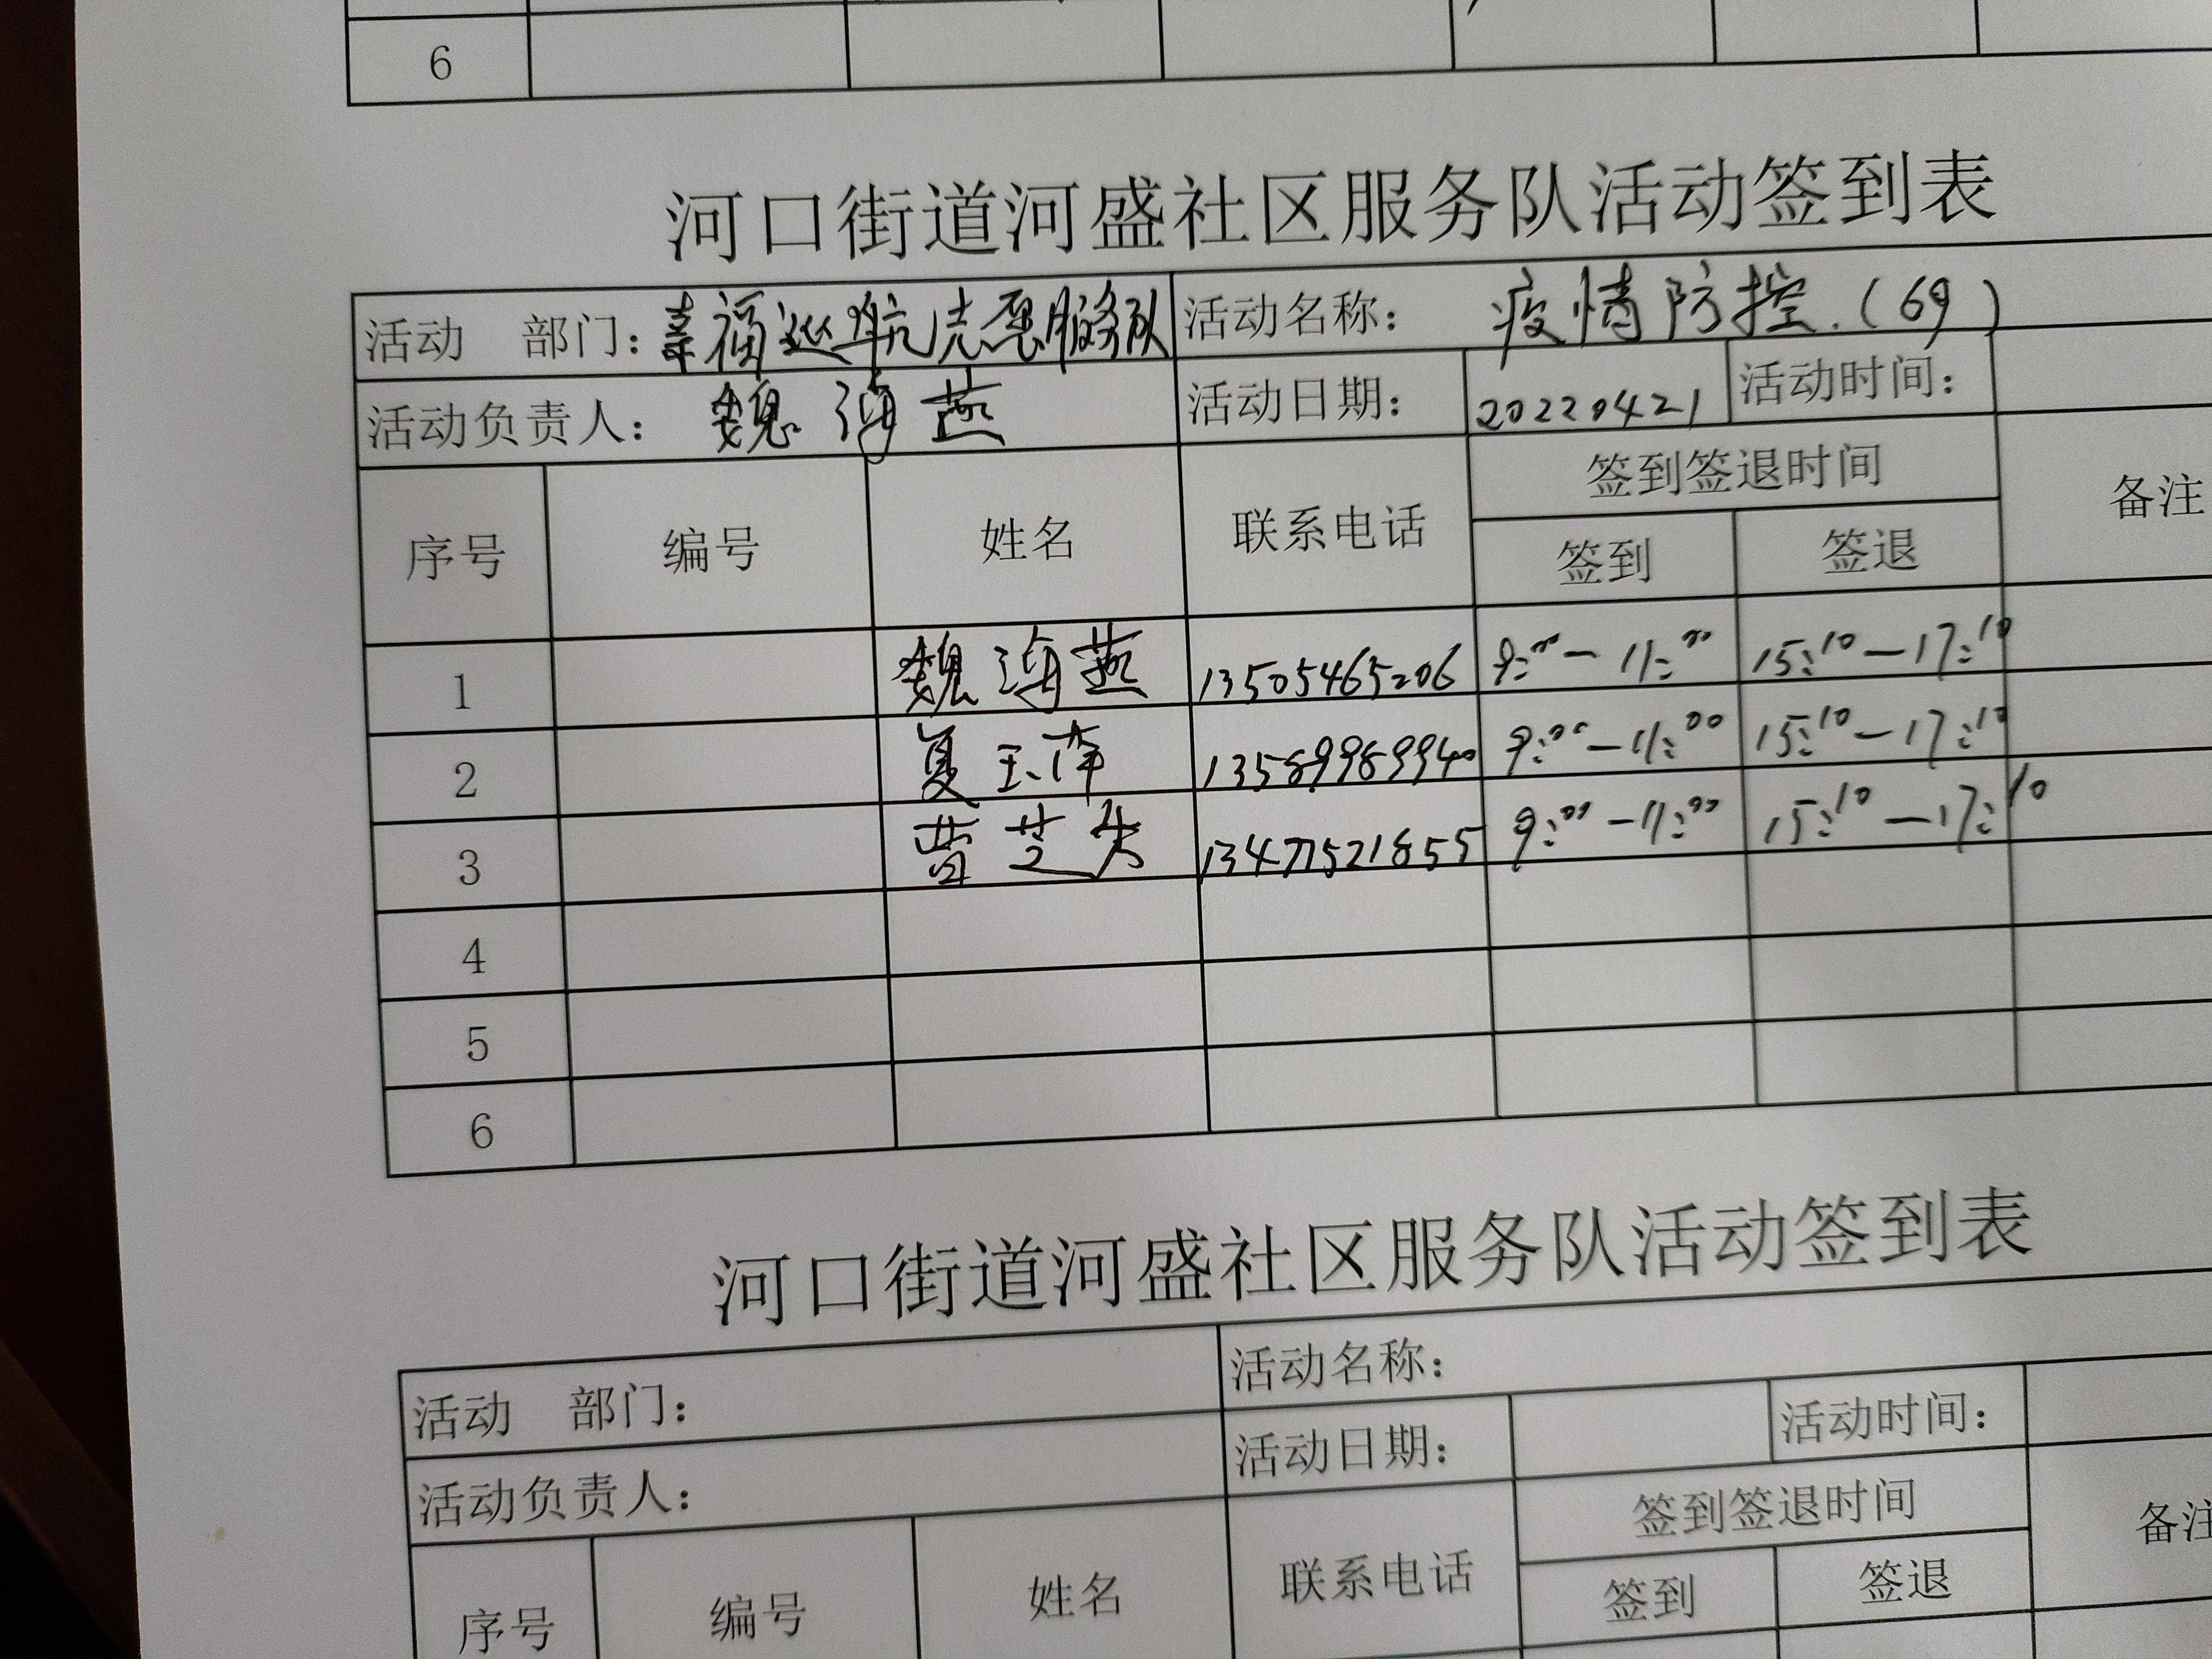 6
河口街道河盛社区服务队活动签到表
活动 部门：幸福巡航志愿服务队 活动名称： 疫情防控.（69）
活动负责人： 魏海燕 活动日期： 20220421 活动时间：
序号 编号 姓名 联系电话 签到签退时间 备注
签到 签退
1 魏海燕 13505465206 9:00－11:00 15:10－17:10
2 夏玉萍 13589989940 9:00－11:00 15:10－17:10
3 曹芝 13477521855 9:00－11:00 15:10－17:10
4
5
6
河口街道河盛社区服务队活动签到表
活动 部门： 活动名称：
活动负责人： 活动日期： 活动时间：
序号 编号 姓名 联系电话 签到签退时间 备注
签到 签退